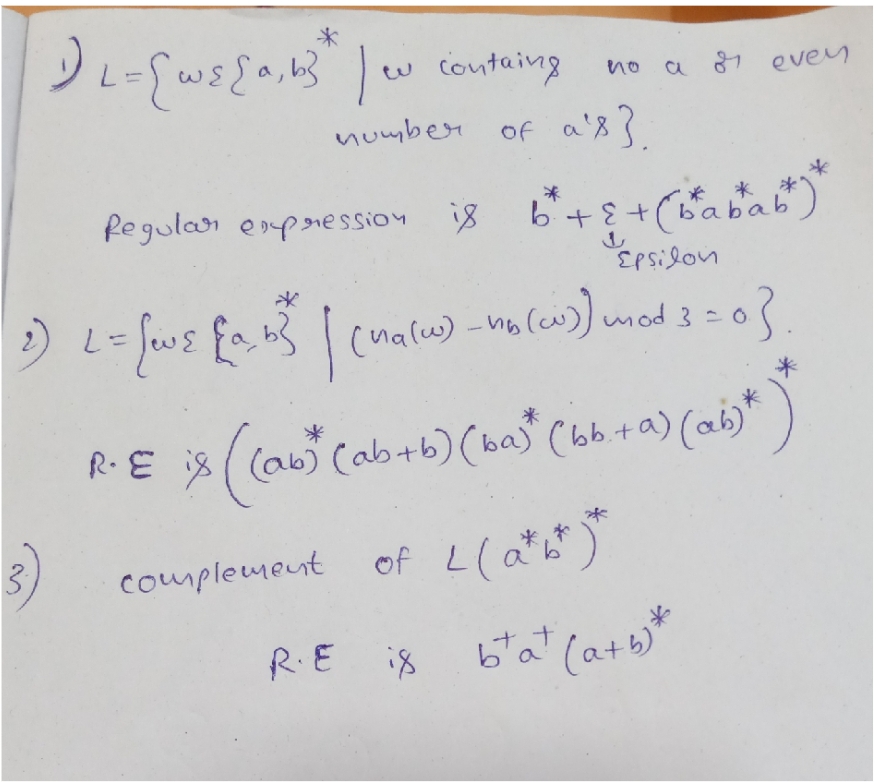 1) L={wε{a,b}* | w contains no a or even
number of a's}.
Regular expression is b* + ε + (b*ab*ab*)*
↓
Epsilon
2) L={wε{a,b}* | (na(w) - nb(w)) mod 3 = 0}.
R.E is ((ab)*(ab+b)(ba)*(bb+a)(ab)*)*
3) complement of L(a*b*)*
R.E is b⁺a⁺(a+b)*